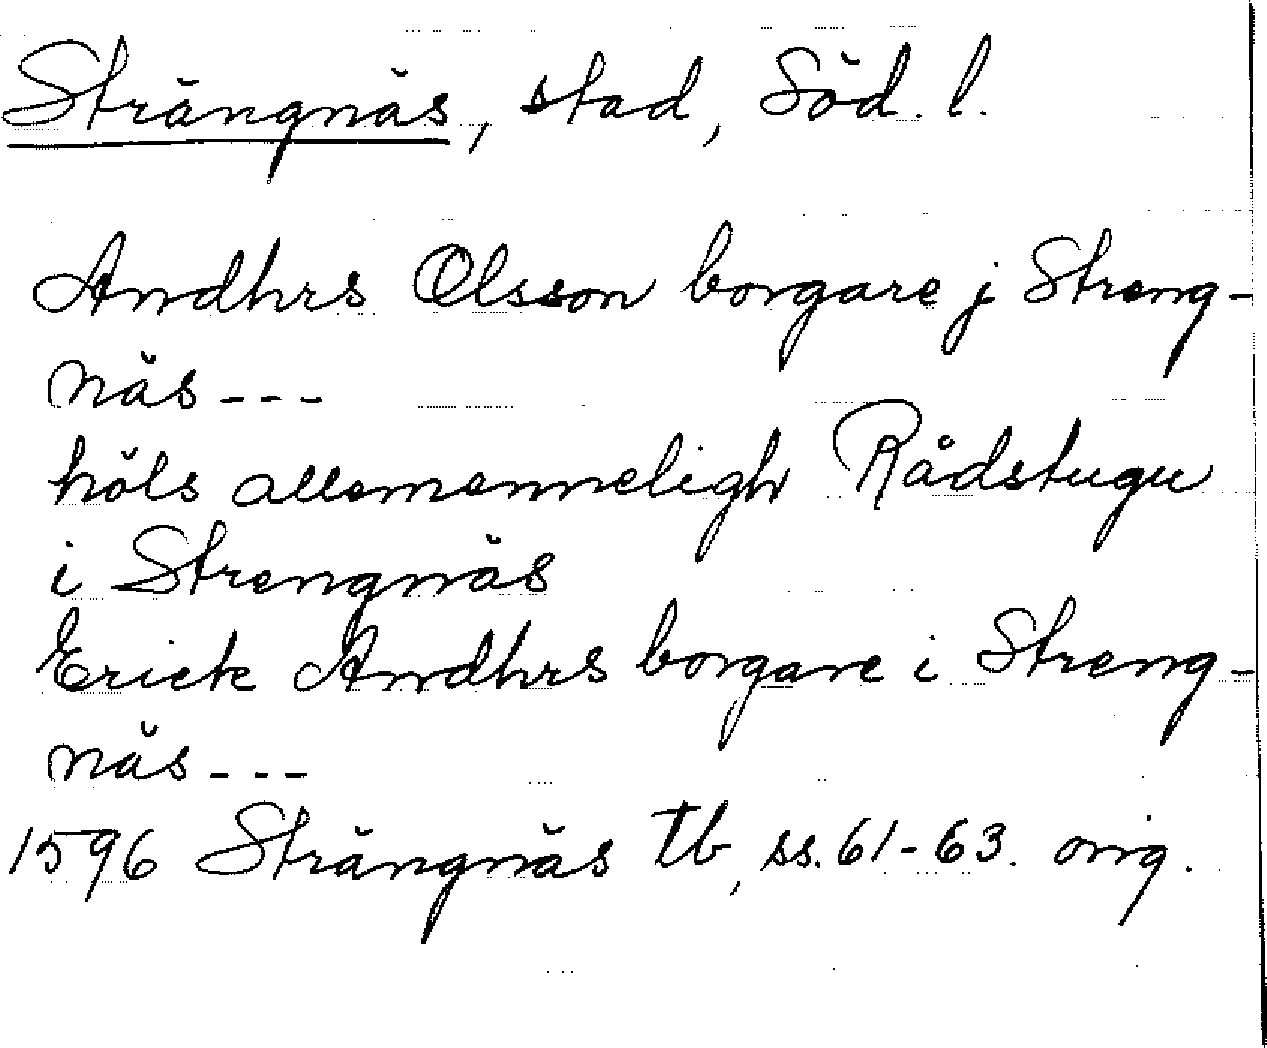 Strängnäs, stad, Söd. l.
Andhrs Olsson borgare j Streng-
näs ---
höls allemenneligh Rådstugu
i Strengnäs
Erick Andhrs borgare i Streng-
näs ---
1596 Strängnäs tb, ss. 61-63. orig.